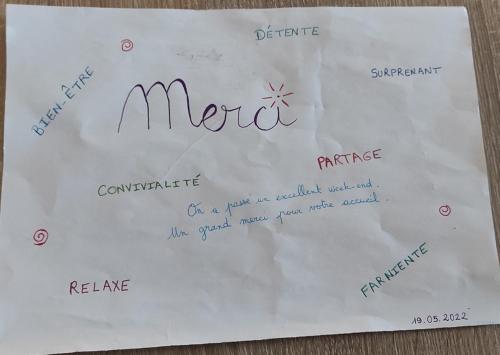 DÉTENTE
BIEN-ÊTRE
SURPRENANT
Merci
PARTAGE
CONVIVIALITÉ
On a passé un excellent week-end.
Un grand merci pour votre accueil.
FARNIENTE
RELAXE
19.05.2022